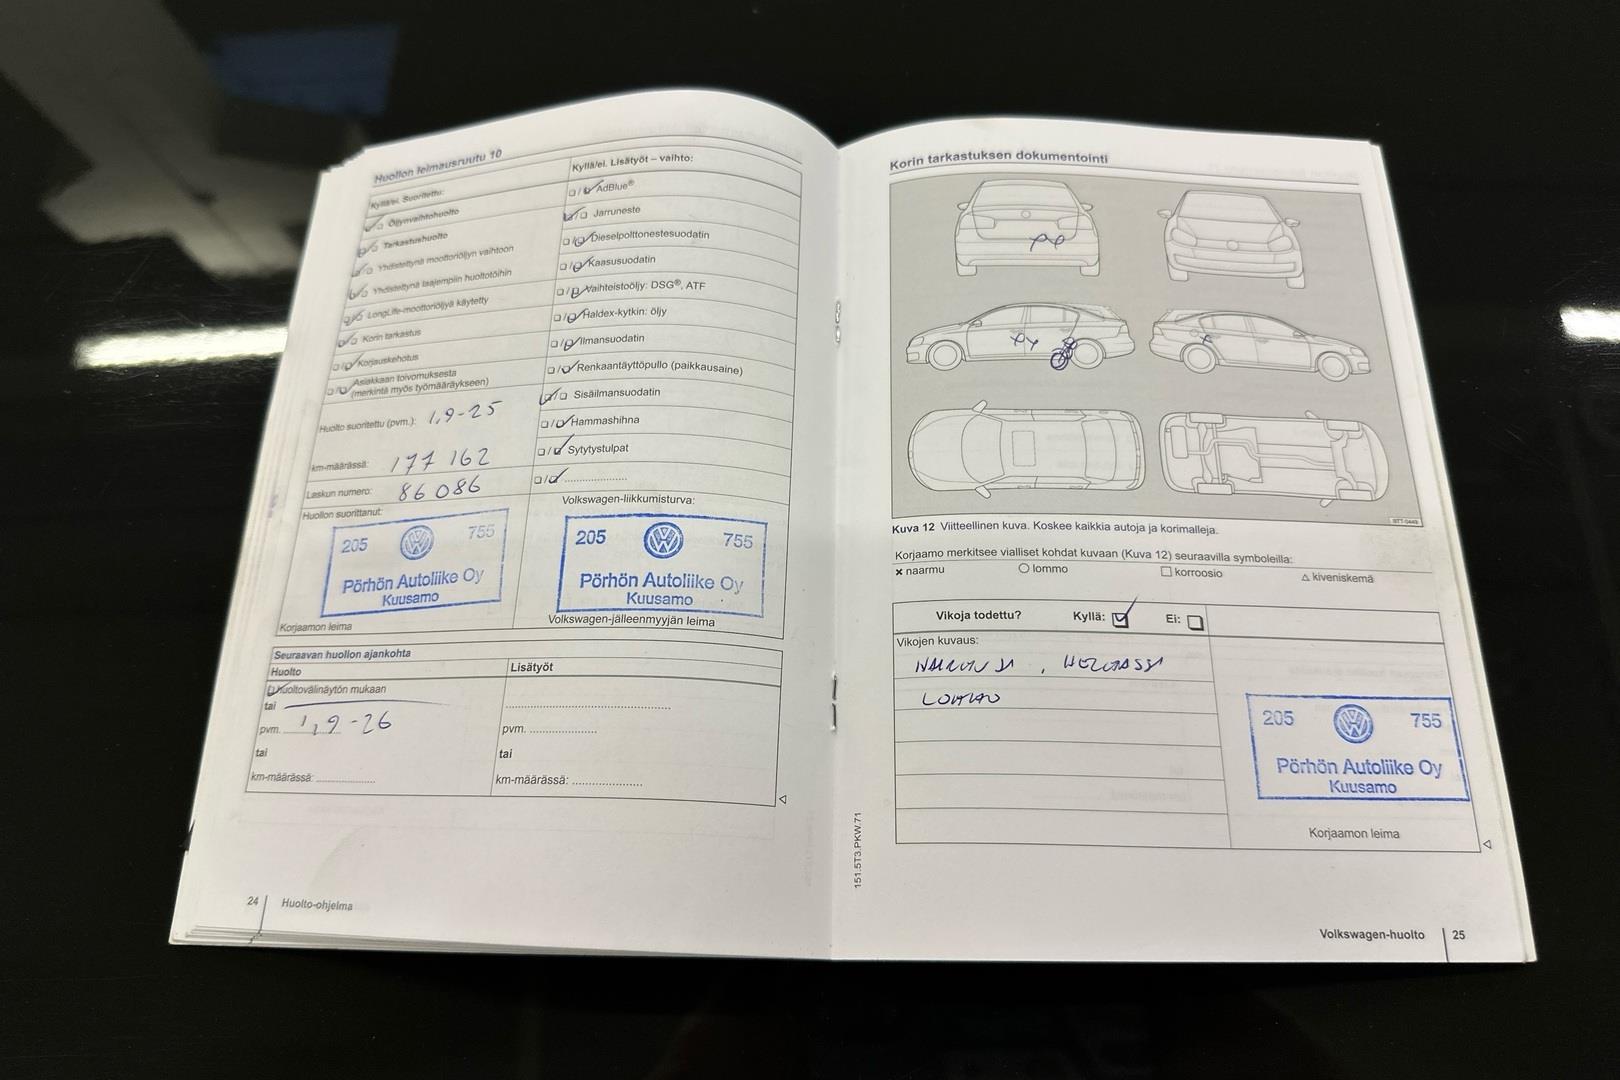 Huollon leimausruutu 10
Kyllä/ei. Suoritettu:
Öljynvaihtohuolto
Tarkastushuolto
Yhdistettynä moottoriöljyn vaihtoon
Yhdistettynä laajempiin huoltotöihin
LongLife-moottoriöljyä käytetty
Korin tarkastus
Korjauskehotus
Asiakkaan toivomuksesta
(merkintä myös työmääräykseen)
Huolto suoritettu (pvm.): 1,9-25
km-määrässä: 177 162
Laskun numero: 86086
Huollon suorittanut:
205 755
Pörhön Autoliike Oy
Kuusamo
Korjaamon leima
Kyllä/ei. Lisätyöt – vaihto:
AdBlue®
Jarruneste
Dieselpolttonestesuodatin
Kaasusuodatin
Vaihteistoöljy: DSG®, ATF
Haldex-kytkin: öljy
Ilmansuodatin
Renkaantäyttöpullo (paikkausaine)
Sisäilmansuodatin
Hammashihna
Sytytystulpat
Volkswagen-liikkumisturva:
205 755
Pörhön Autoliike Oy
Kuusamo
Volkswagen-jälleenmyyjän leima
Seuraavan huollon ajankohta
Huolto
Huoltovälinäytön mukaan
tai
pvm. 1,9-26
tai
km-määrässä:
Lisätyöt
pvm.
tai
km-määrässä:
24 Huolto-ohjelma
Korin tarkastuksen dokumentointi
Kuva 12 Viitteellinen kuva. Koskee kaikkia autoja ja korimalleja.
Korjaamo merkitsee vialliset kohdat kuvaan (Kuva 12) seuraavilla symboleilla:
× naarmu ○ lommo □ korroosio △ kiveniskemä
Vikoja todettu? Kyllä: Ei:
Vikojen kuvaus:
205 755
Pörhön Autoliike Oy
Kuusamo
Korjaamon leima
151.5T3.PKW.71
Volkswagen-huolto 25